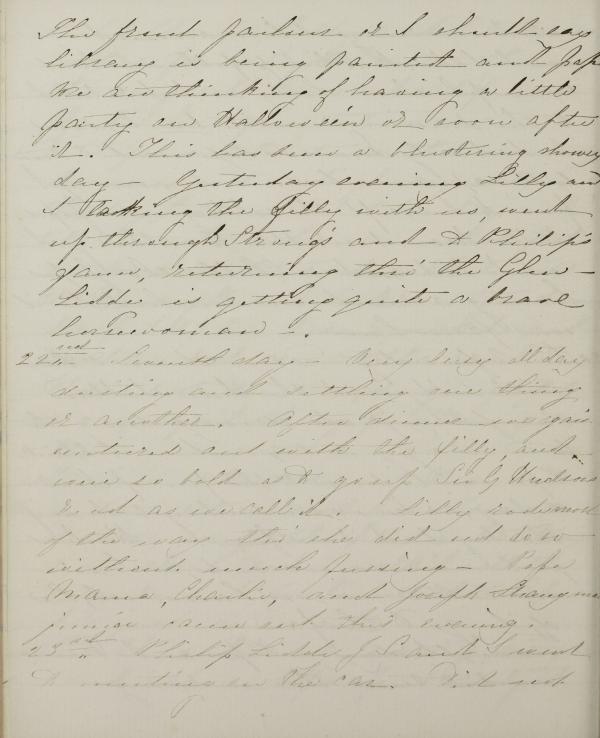 The front parlour or I should say
library is being painted and pap
we are thinking of having a little
party on Halloween or soon after
it. This has been a blustering showy
day – Yesterday evening Lilly and
I taking the filly with us, went
up through Strong's and D Philip's
farm, returning thro' the Glen –
Lidde is getting quite a brave
horsewoman –.
22nd Seventh day – Very busy all day
dusting and settling one thing
or another. After dinner we again
ventured out with the filly, and
were so bold as to go up Hudson
Road as we call it. Lilly rode most
of the way tho' she did not do so
without much fussing – Papa
Mama, Charlie, and Joseph
junior came out this evening.
23rd " Philip Lidde J S and I went
to meeting in the car. Did not